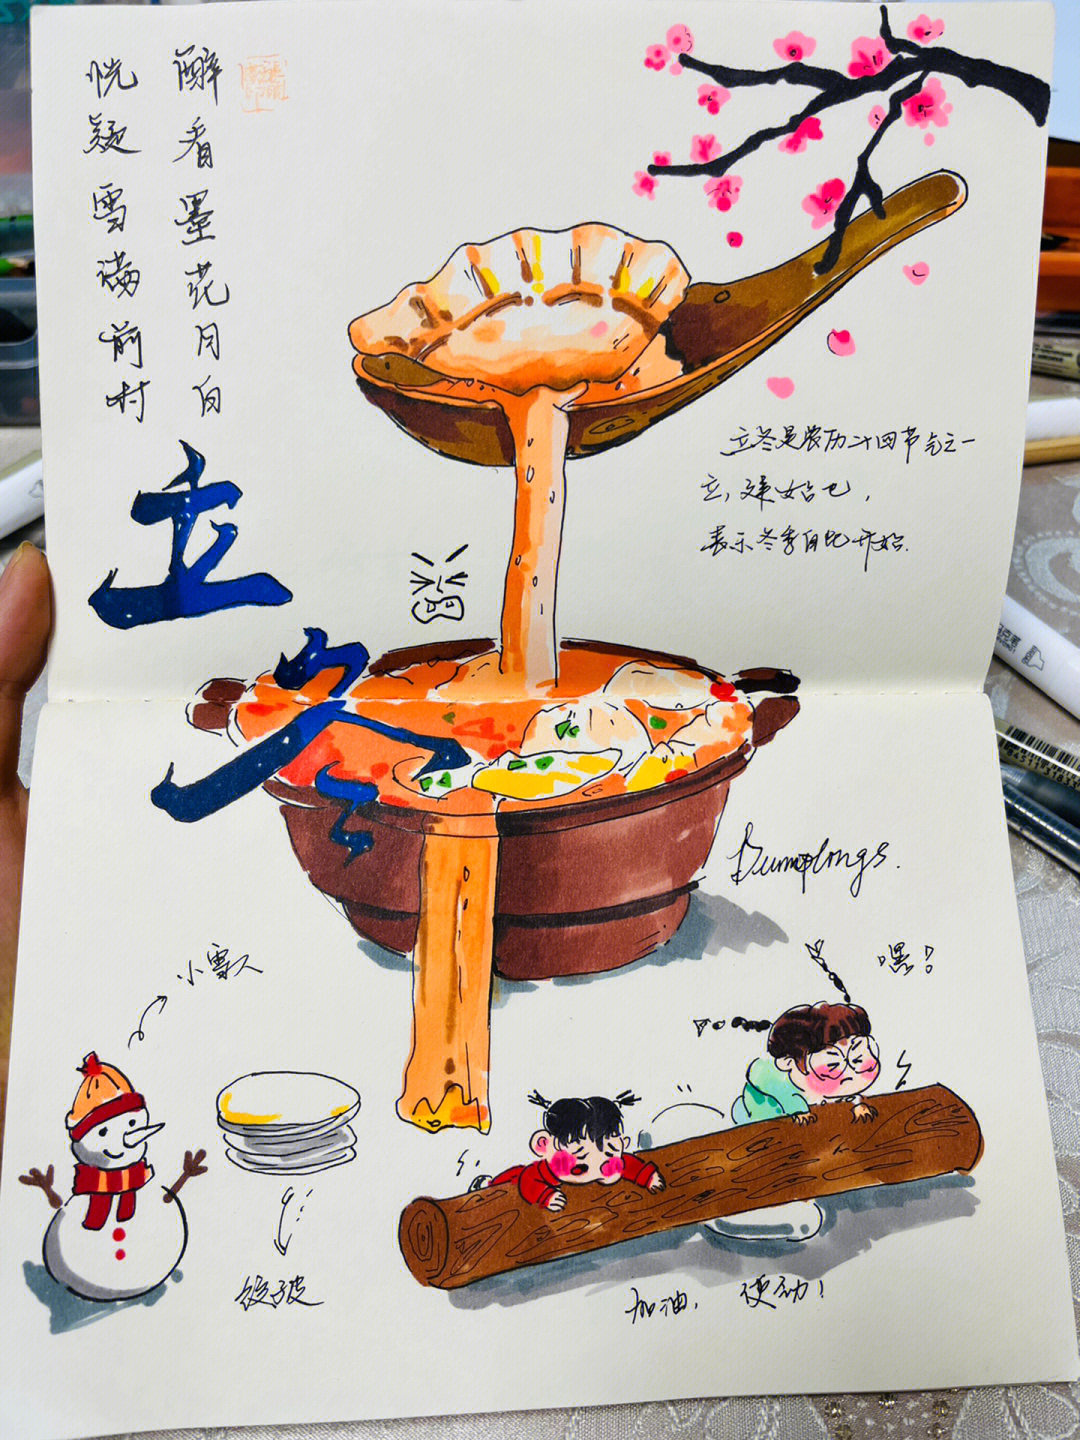 醉看墨花月白
恍疑雪满前村
立冬
立冬是农历二十四节气之一
立，建始也，
表示冬季自此开始.
Dumplings.
小雪人
嘿！
饺子皮
加油，使劲！